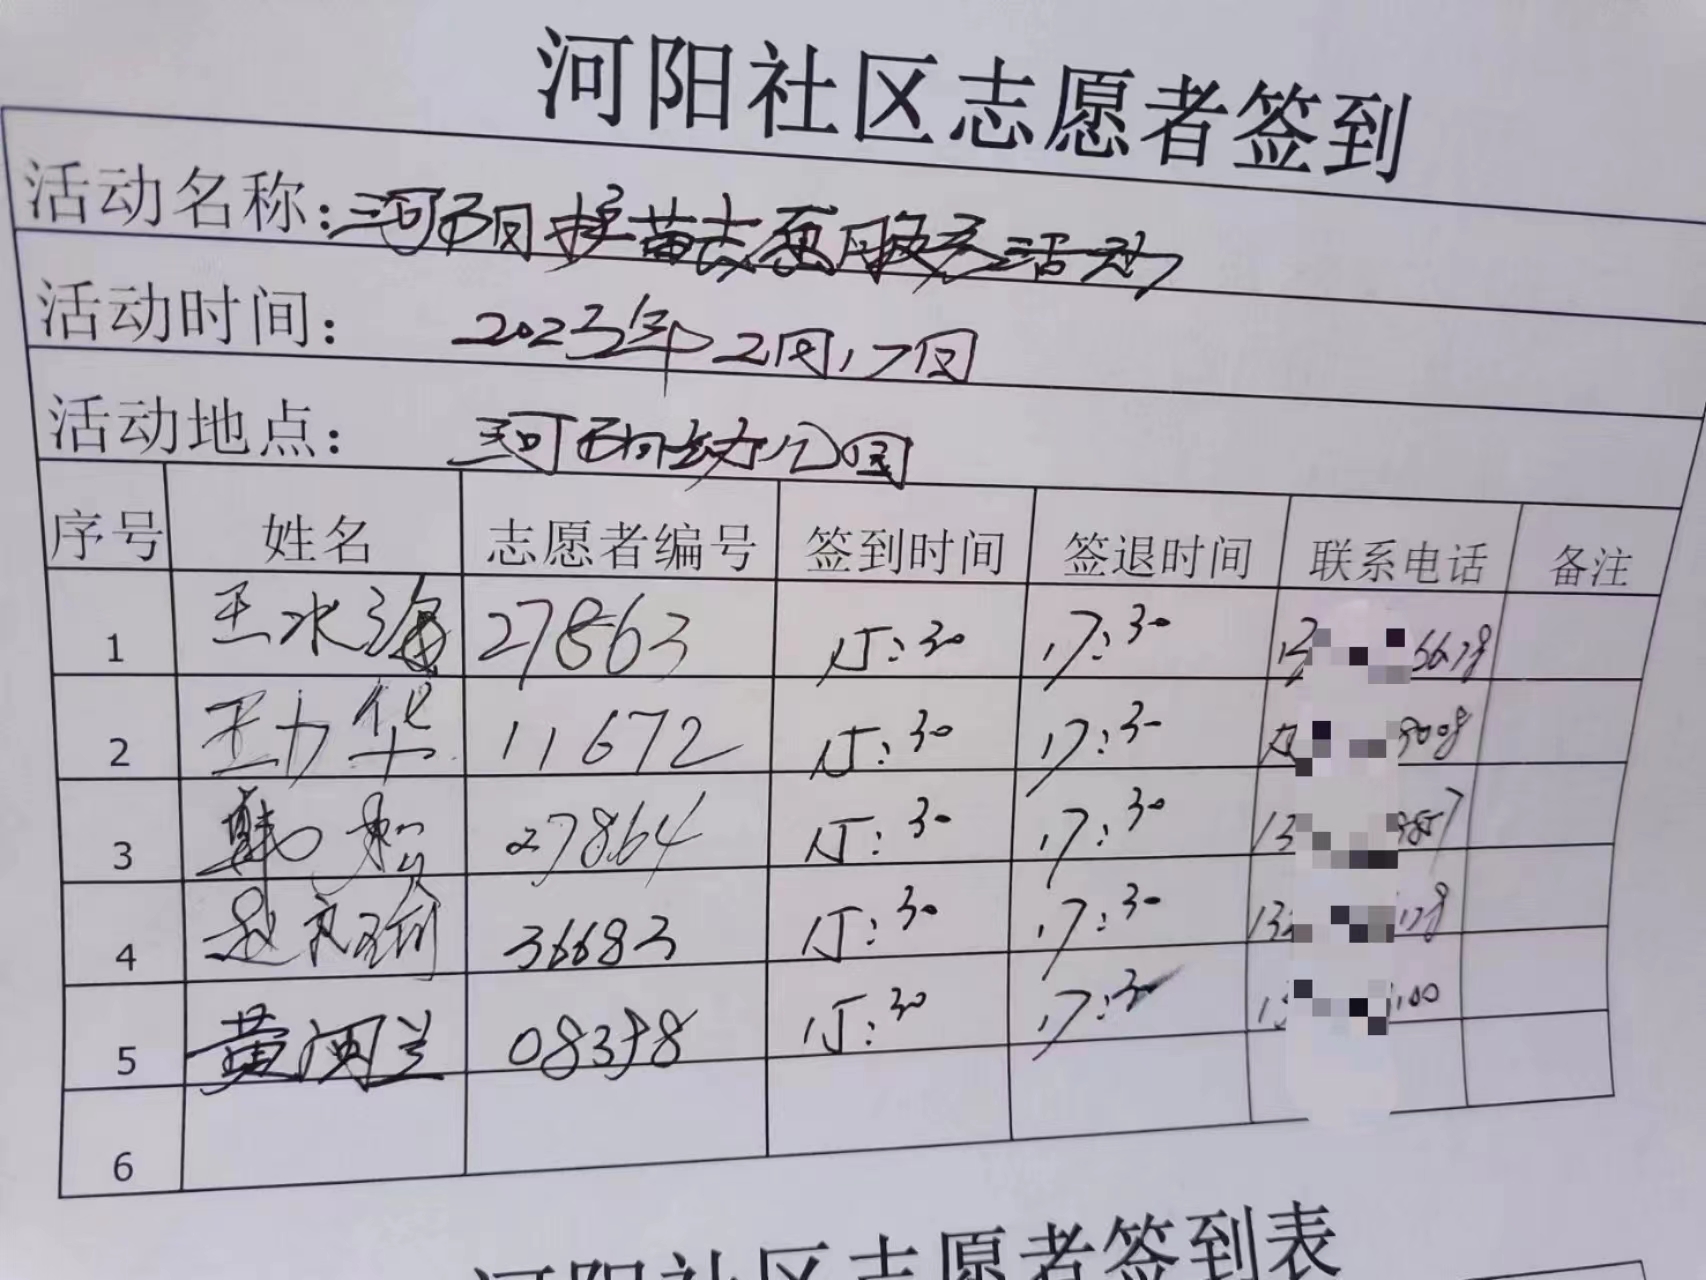 河阳社区志愿者签到
活动名称：河阳护苗志愿服务活动
活动时间： 2023年2月17日
活动地点： 河阳幼儿园
序号 姓名 志愿者编号 签到时间 签退时间 联系电话 备注
1 王冰海 27863 15:30 17:30
2 王力华 11672 15:30 17:30 9008
3 韩 27864 15:30 17:30 13 9857
4 赵 36683 15:30 17:30 132 178
5 黄闽兰 08398 15:30 17:30 100
6
河阳社区志愿者签到表